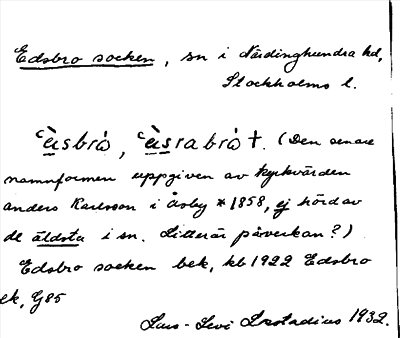 Edsbro socken, sn i Närdinghundra hd,
Stockholms l.
ʿùsbrò, ʿùsrabrò †. (Den senare
namnformen uppgiven av kyrkvärden
Anders Karlsson i Åsby * 1858, ej hörd av
de äldsta i sn. Litterär påverkan?)
Edsbro socken bek, kb 1922 Edsbro
ek, G85
Lars-Levi Læstadius 1932.